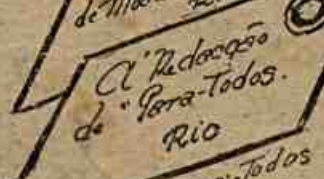 de Mo
A' Redacção
do "Para-Todos.
Rio
Todos